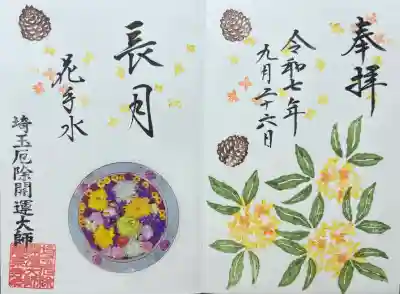 奉拝
令和七年
九月二十六日
長月
花手水
埼玉厄除開運大師